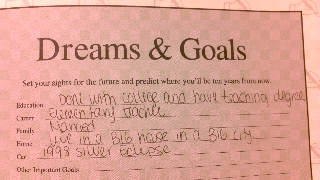 Dreams & Goals
Set your sights for the future and predict where you'll be ten years from now.
Education Done with college and have teaching degree
Career Elementary teacher
Family Married
Home Live in a BIG house in a BIG city
Car 1998 silver Eclipse
Other Important Goals